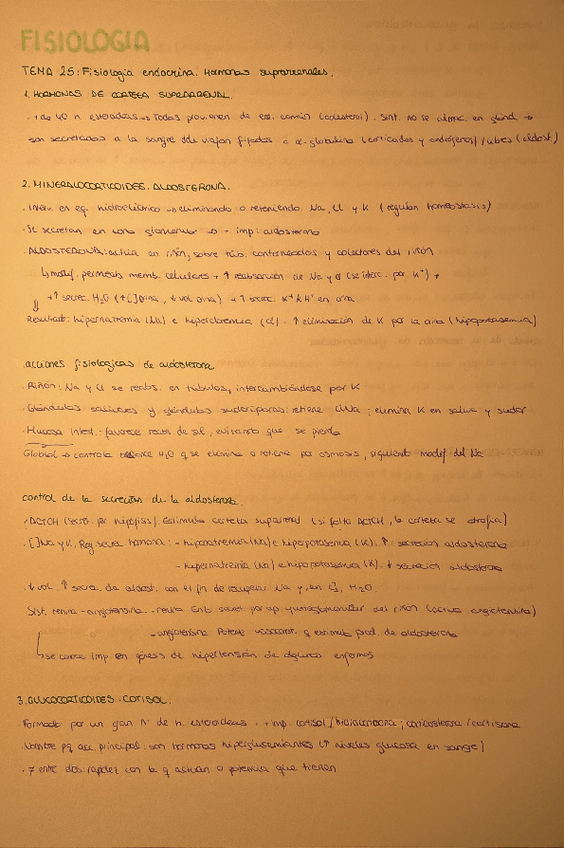 FISIOLOGIA
TEMA 25: Fisiologia endocrina. Hormonas suprarrenales.
1. HORMONAS DE CORTEZA SUPRARRENAL.
· + de 40 h. esteroideas → todas provienen de est. común (colesterol). Sint. no se almac. en glánd →
son secretadas a la sangre dde viajan fijadas a α-globulina (corticoides y andrógenos) / libres (aldost.)
2. MINERALOCORTICOIDES. ALDOSTERONA.
· Interv. en eq. hidroeléctrico → eliminando o reteniendo Na, Cl y K (regulan homeostasis)
· Se secretan en zona glomerular → + imp: aldosterona
· ALDOSTERONA: actúa en riñón, sobre túb. contorneados y colectores del riñón
↳ modif. permeab memb. celulares + ↑ reabsorción de Na y Cl (se interc. por K⁺) +
⇓ + ↑ secrec. H₂O (+[] orina, ↓ vol orina) + ↑ secrec K⁺ & H⁺ en orina
Resultado: hipernatremia (Na) e hipercloremia (Cl). ↑ eliminación de K por la orina (hipopotasemia)
acciones fisiologicas de aldosterona
· Riñón: Na y Cl se reabs. en túbulos, intercambiándose por K
· Glándulas salivares y glándulas sudoríparas: retiene ClNa; elimina K en saliva y sudor
· Mucosa intest.: favorece reabs de sal, evitando que se pierda
Global → controla balance H₂O q se elimina o retiene por osmosis, siguiendo modif. del Na
control de la secreción de la aldosterona.
· ACTH (secret. por hipófisis). Estimula corteza suprarrenal (si falta ACTH, la corteza se atrofia)
· [] Na y K. Reg secre hormona: - hiponatremia (Na) e hiperpotasemia (K). ↑ secreción aldosterona
- hipernatremia (Na) e hipopotasemia (K). ↓ secreción aldosterona
· ↓ vol. ↑ secre. de aldost. con el fin de recuperar Na y, en cj, H₂O
Sist. renina-angiotensina - renina Enb secret. por ap. yuxtaglomerular del riñón (activa angiotensina)
- angiotensina Potente vasoconst. q estimula prod. de aldosterona
↳ se conoce imp en génesis de hipertensión de algunos enfermos
3. GLUCOCORTICOIDES. CORTISOL.
· Formado por un gran nº de h. esteroideas. + imp. cortisol/hidrocortisona; corticosterona/cortisona
Nombre pq acc. principal: son hormonas hiperglucemiantes (↑ niveles glucosa en sangre)
· ≠ entre dos rapidez con la q actúan o potencia que tienen